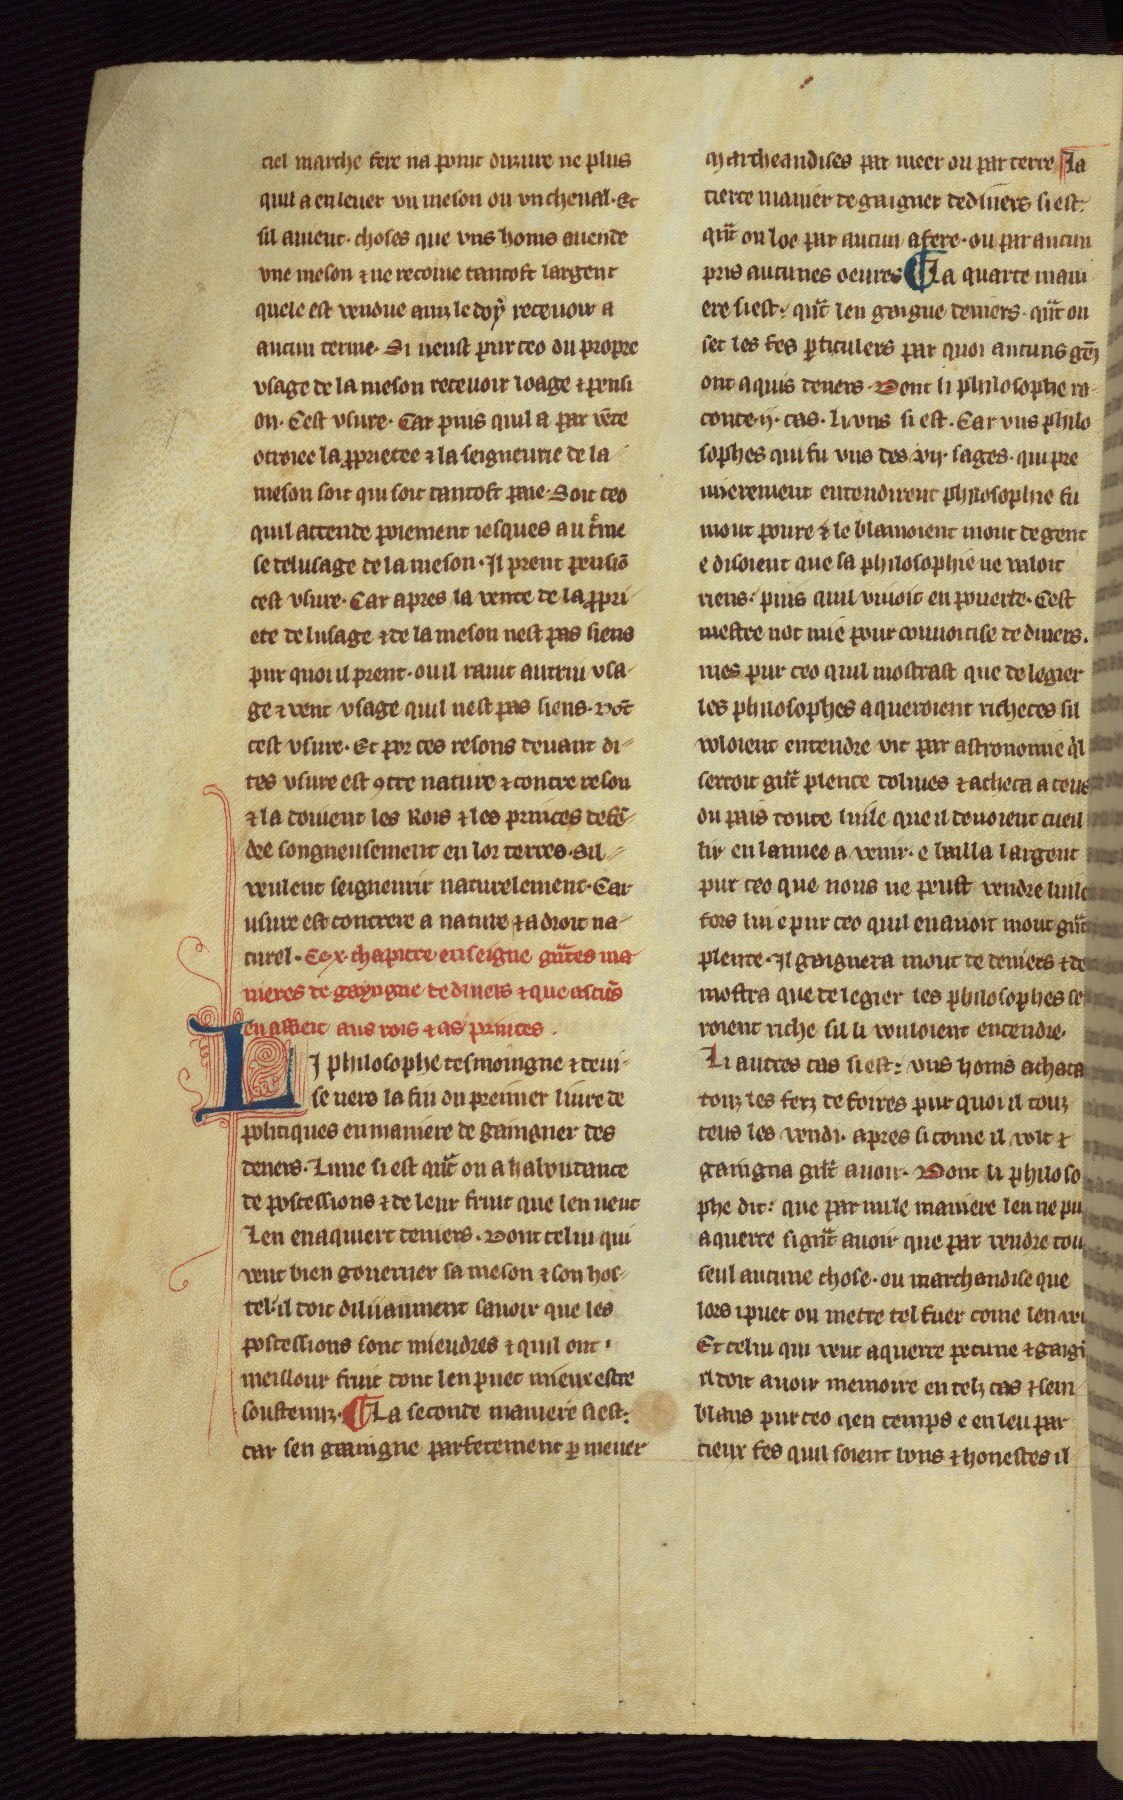 ciel marche fere na point dusure ne plus
quil a en lever un meson ou un cheval. Et
sil avient. choses que uns homs avende
une meson ⁊ ne recoive tantost largent
quele est vendue ainz le doy recevoir a
aucun terme. Si neust pur ceo du propre
usage de la meson recevoir loage ⁊ pensi
on. Cest usure. Car puis quil a par vẽte
otroiee la ꝓprietee ⁊ la seigneurie de la
meson soit qui soit tantost paie. Soit ceo
quil attende poiement iesques a u tʳme
se tel usage de la meson. Il prent pensiõ
cest usure. Car apres la vente de la ꝓpri
ete de lusage ⁊ de la meson nest pas siens
pur quoi il prent. ou il ravit autrui usa
ge ⁊ vent usage quil nest pas siens. Dõt
cest usure. Et por ces resons devant di
tes usure est ꝯtre nature ⁊ contre reson
⁊ la doivent les Rois ⁊ les princes defẽ
dre songneusement en lor terres. Sil
veulent seigneurir naturelement. Car
usure est contrere a nature ⁊ a droit na
turel. Ce .x. chapitre enseigne qũtes ma
nieres de gayngne de diners ⁊ que ascũs
en affiert aus rois ⁊ as princes.
LI philosophe tesmoingne ⁊ devi
se vers la fin du premier livre de
politiques en maniere de gaingner des
deners. Lune si est qũt on a habundance
de possessions ⁊ de leur fruit que len vent
Len en aquiert deniers. Dont celui qui
veut bien governer sa meson ⁊ son hos
tel il doit diliiaument savoir que les
possessions sont miendres ⁊ quil ont
meillour fruit dont len puet mieux estre
soustenuz. ¶ La seconde maniere si est:
car sen gaaingne parfetement ꝑ mener
marcheandises par meer ou par terre ¶ La
tierce manier de gaigner de diners si est:
qũt on loe par aucun afere. ou par aucun
pris aucunes oeures ¶ La quarte mani
ere si est: qũt len gaigne deniers. qũt on
set les fes ꝑticulers par quoi aucuns gẽz
ont aquis deners. Dont li philosophe ra
conte .ij. cas. li uns si est. Car uns philo
sophes qui fu uns des .vij. sages. qui pre
mierement entendirent philosophie fu
mout povre ⁊ le blamoient mout de gent
e disoient que sa philosophie ne valoit
riens: puis quil vivoit en poverte. Cest
mestre not mie pour couvoitise de diners.
mes pur ceo quil mostrast que de legier
les philosophes aqueroient richeces sil
voloient entendre vit par astronomie qͥl
serroit gñt plente dolives ⁊ acheta a ceus
du pais toute luile que il devoient cueil
lir en lannee a venir. e bailla largent
pur ceo que nous ne peust vendre luile
fors lui e pur ceo quil en avoit mout gñt
plente. Il gaignera mout de deniers ⁊ de
mostra que de legier les philosophes se
roient riche sil li vouloient entendre.
Li autres cas si est: uns homs achata
touz les ferz de foires pur quoi il touz
ceus les vendi. apres si come il volt ⁊
gaaigna gñt avoir. Dont li philoso
phe dit: que par nule maniere len ne pu
aquerre si gñt avoir que par vendre tou
seul aucune chose. ou marchandise que
lors i puet on mettre tel fuer come len ve
Et celui qui veut aquerre pecune ⁊ gaign
il doit avoir memoire en telz cas ⁊ sem
blans pur ceo qen temps e en leu par
tieux fes quil soient bons ⁊ honestes il